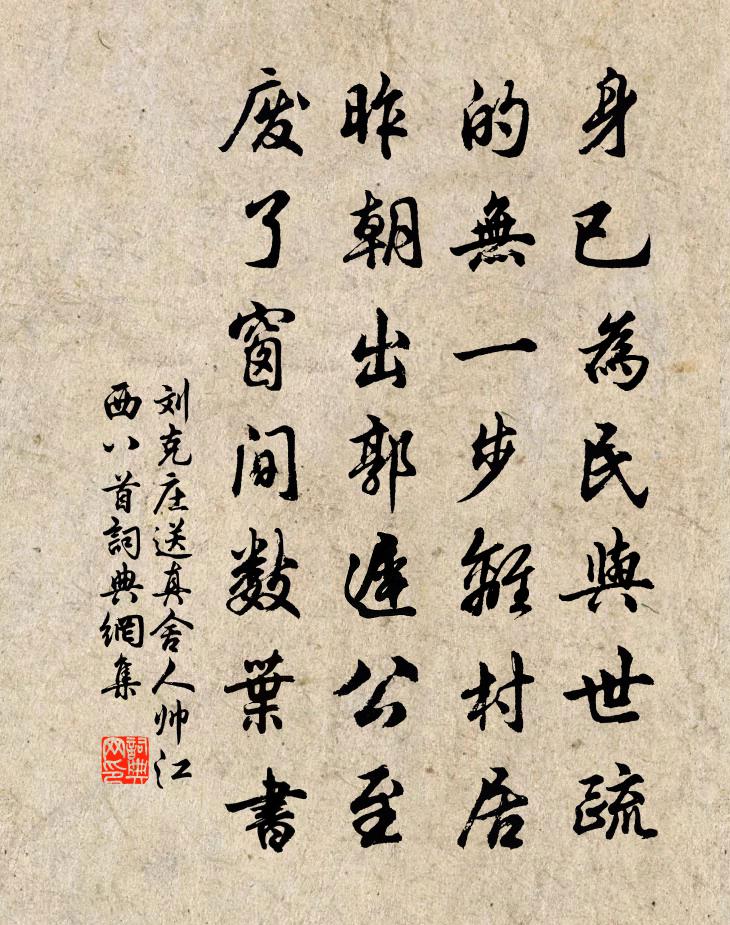 身已為民與世疏
的無一步離村居
昨朝出郭遲公至
废了窗间數葉書
刘克庄送真舍人帅江
西八首詞典網集
詞典
网印